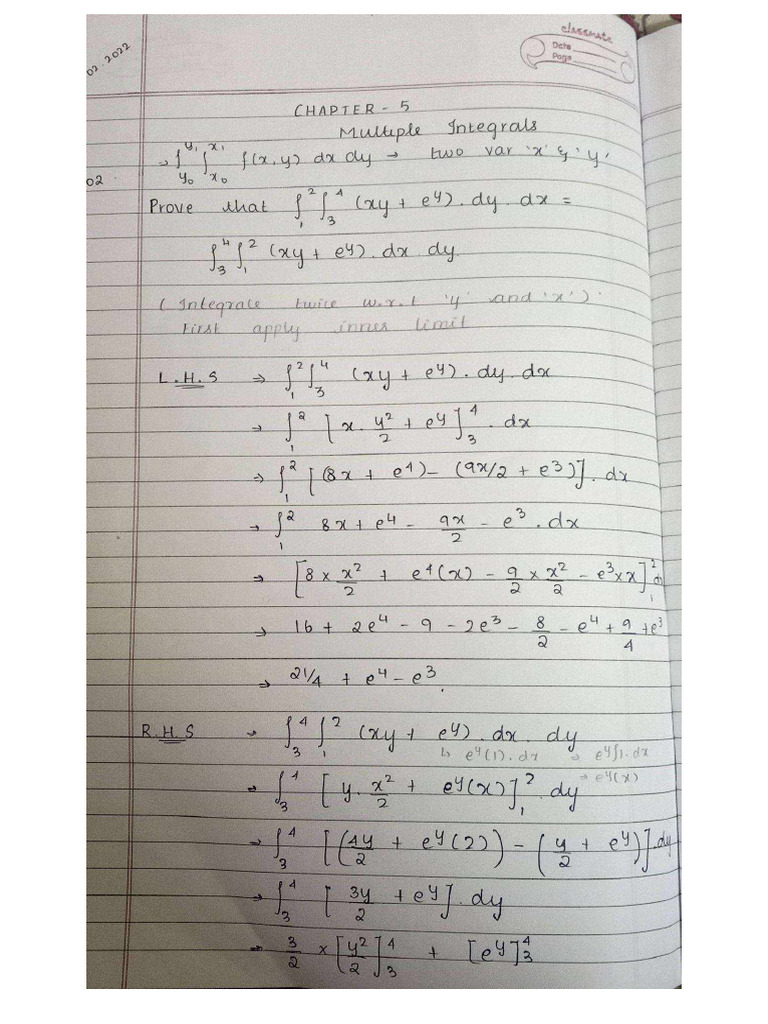 classmate
Date
Page
02.2022
CHAPTER - 5
Multiple Integrals
→ ∫_{y₀}^{y₁} ∫_{x₀}^{x₁} f(x,y) dx dy → two var 'x' & 'y'
02.
Prove that ∫_1^2 ∫_3^4 (xy + e^y) . dy . dx =
∫_3^4 ∫_1^2 (xy + e^y) . dx dy.
(Integrate twice w.r.t 'y' and 'x').
First apply inner limit
L.H.S → ∫_1^2 ∫_3^4 (xy + e^y) . dy . dx
→ ∫_1^2 [x . y²/2 + e^y]_3^4 . dx
→ ∫_1^2 [(8x + e^4) - (9x/2 + e^3)] . dx
→ ∫_1^2 8x + e^4 - 9x/2 - e^3 . dx
→ [8 × x²/2 + e^4(x) - 9/2 × x²/2 - e^3 × x]_1^2
→ 16 + 2e^4 - 9 - 2e^3 - 8/2 - e^4 + 9/4 + e^3
→ 21/4 + e^4 - e^3.
R.H.S → ∫_3^4 ∫_1^2 (xy + e^y) . dx . dy
↳ e^y(1) . dx → e^y ∫1 . dx
→ e^y(x)
→ ∫_3^4 [y . x²/2 + e^y(x)]_1^2 . dy
→ ∫_3^4 [(4y/2 + e^y(2)) - (y/2 + e^y)] . dy
→ ∫_3^4 [3y/2 + e^y] . dy
→ 3/2 × [y²/2]_3^4 + [e^y]_3^4